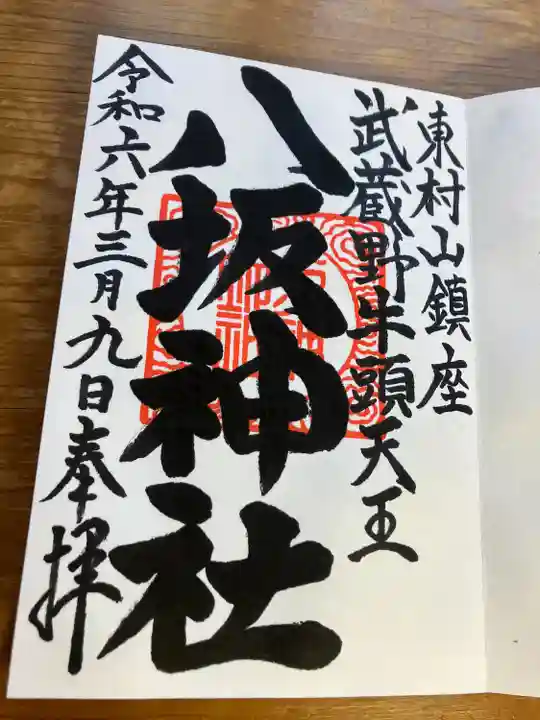 東村山鎮座
武蔵野牛頭天王
八坂神社
令和六年三月九日奉拝